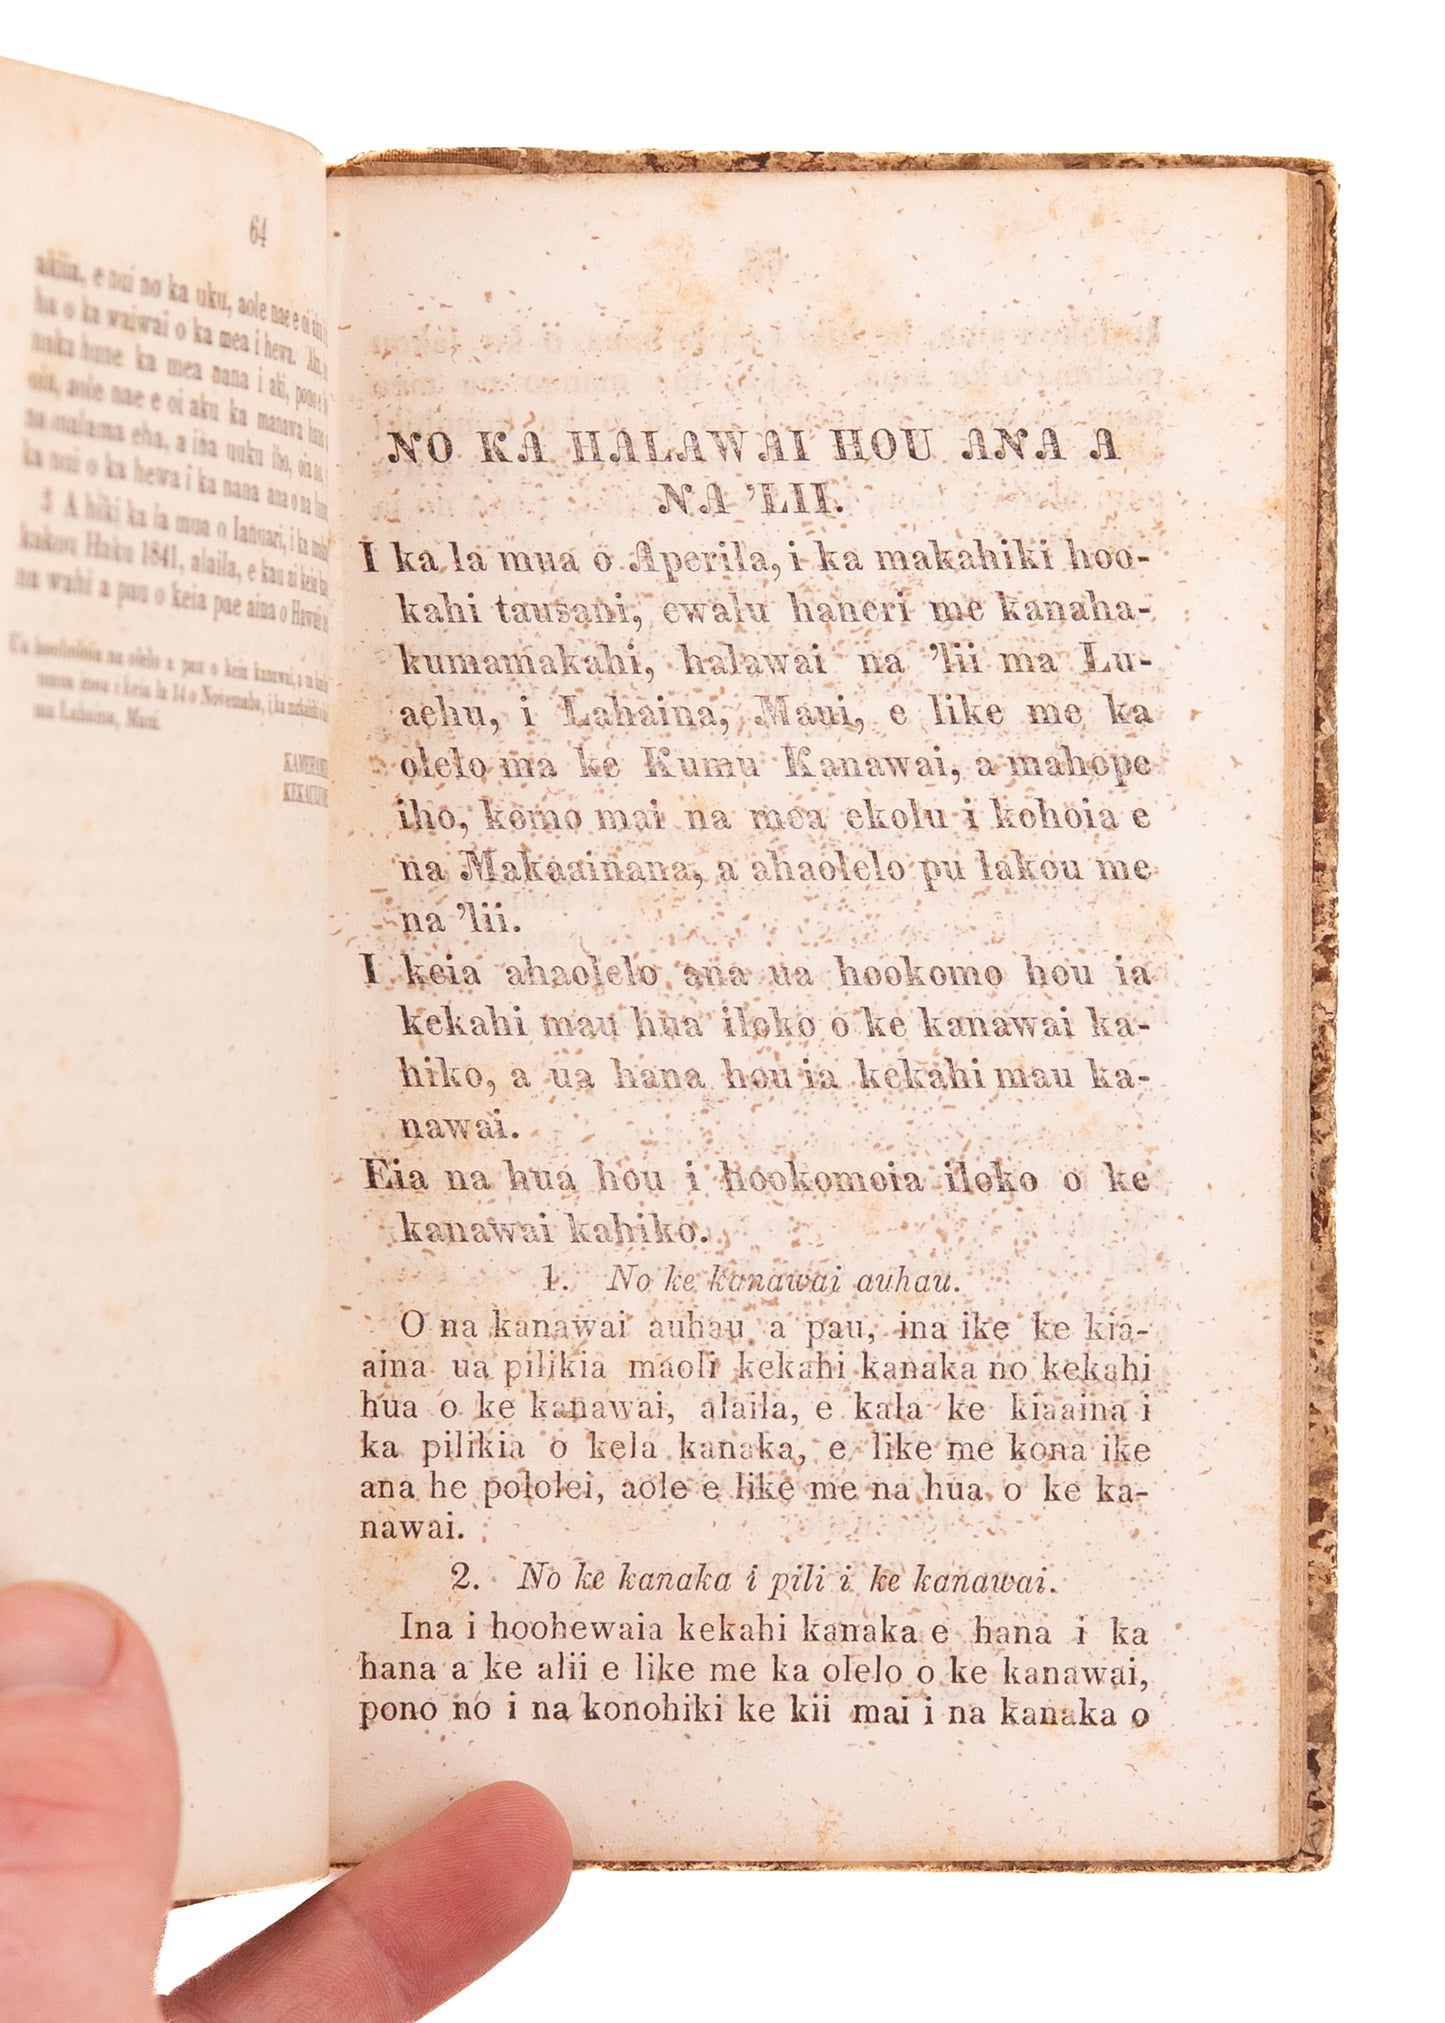 64
akiia, e nui no ka uku, aole nae e oi aku
ha o ka waiwai o ka mea i hewa. Aka,
naka hune ka mea nana i aki, pono e
oia, aole nae e oi aku ka manawa hana
na malama eha, a ina uuku iho, oia no,
ka nui o ka hewa i ka nana ana o na
5 A hiki ka la mua o Ianuari, i ka
kakou Haku 1841, alaila, e kau ai keia
na wahi a pau o keia pae aina o Hawaii
Ua hooholoia na olelo a pau o keia kanawai, a ua
inoa i keia la 14 o Novemaba, i ka
ma Lahaina, Maui.
NO KA HALAWAI HOU ANA A
NA 'LII.
I ka la mua o Aperila, i ka makahiki hoo-
kahi tausani, ewalu haneri me kanaha-
kumamakahi, halawai na 'lii ma Lu-
aehu, i Lahaina, Maui, e like me ka
olelo ma ke Kumu Kanawai, a mahope
iho, komo mai na mea ekolu i kohoia e
na Makaainana, a ahaolelo pu lakou me
na 'lii.
I keia ahaolelo ana ua hookomo hou ia
kekahi mau hua iloko o ke kanawai ka-
hiko, a ua hana hou ia kekahi mau ka-
nawai.
Eia na hua hou i hookomoia iloko o ke
kanawai kahiko.
1. No ke kanawai auhau.
O na kanawai auhau a pau, ina ike ke kia-
aina ua pilikia maoli kekahi kanaka no kekahi
hua o ke kanawai, alaila, e kala ke kiaaina i
ka pilikia o kela kanaka, e like me kona ike
ana he pololei, aole e like me na hua o ke ka-
nawai.
2. No ke kanaka i pili i ke kanawai.
Ina i hoohewaia kekahi kanaka e hana i ka
hana a ke alii e like me ka olelo o ke kanawai,
pono no i na konohiki ke kii mai i na kanaka o